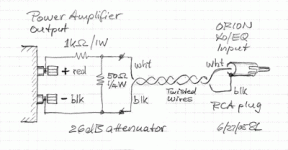 Power Amplifier
Output
ORION
XO/EQ
Input
1kΩ/1W
wht
wht
+ red
50Ω
1/4W
- blk
blk
Twisted
Wires
blk
RCA plug
26dB attenuator